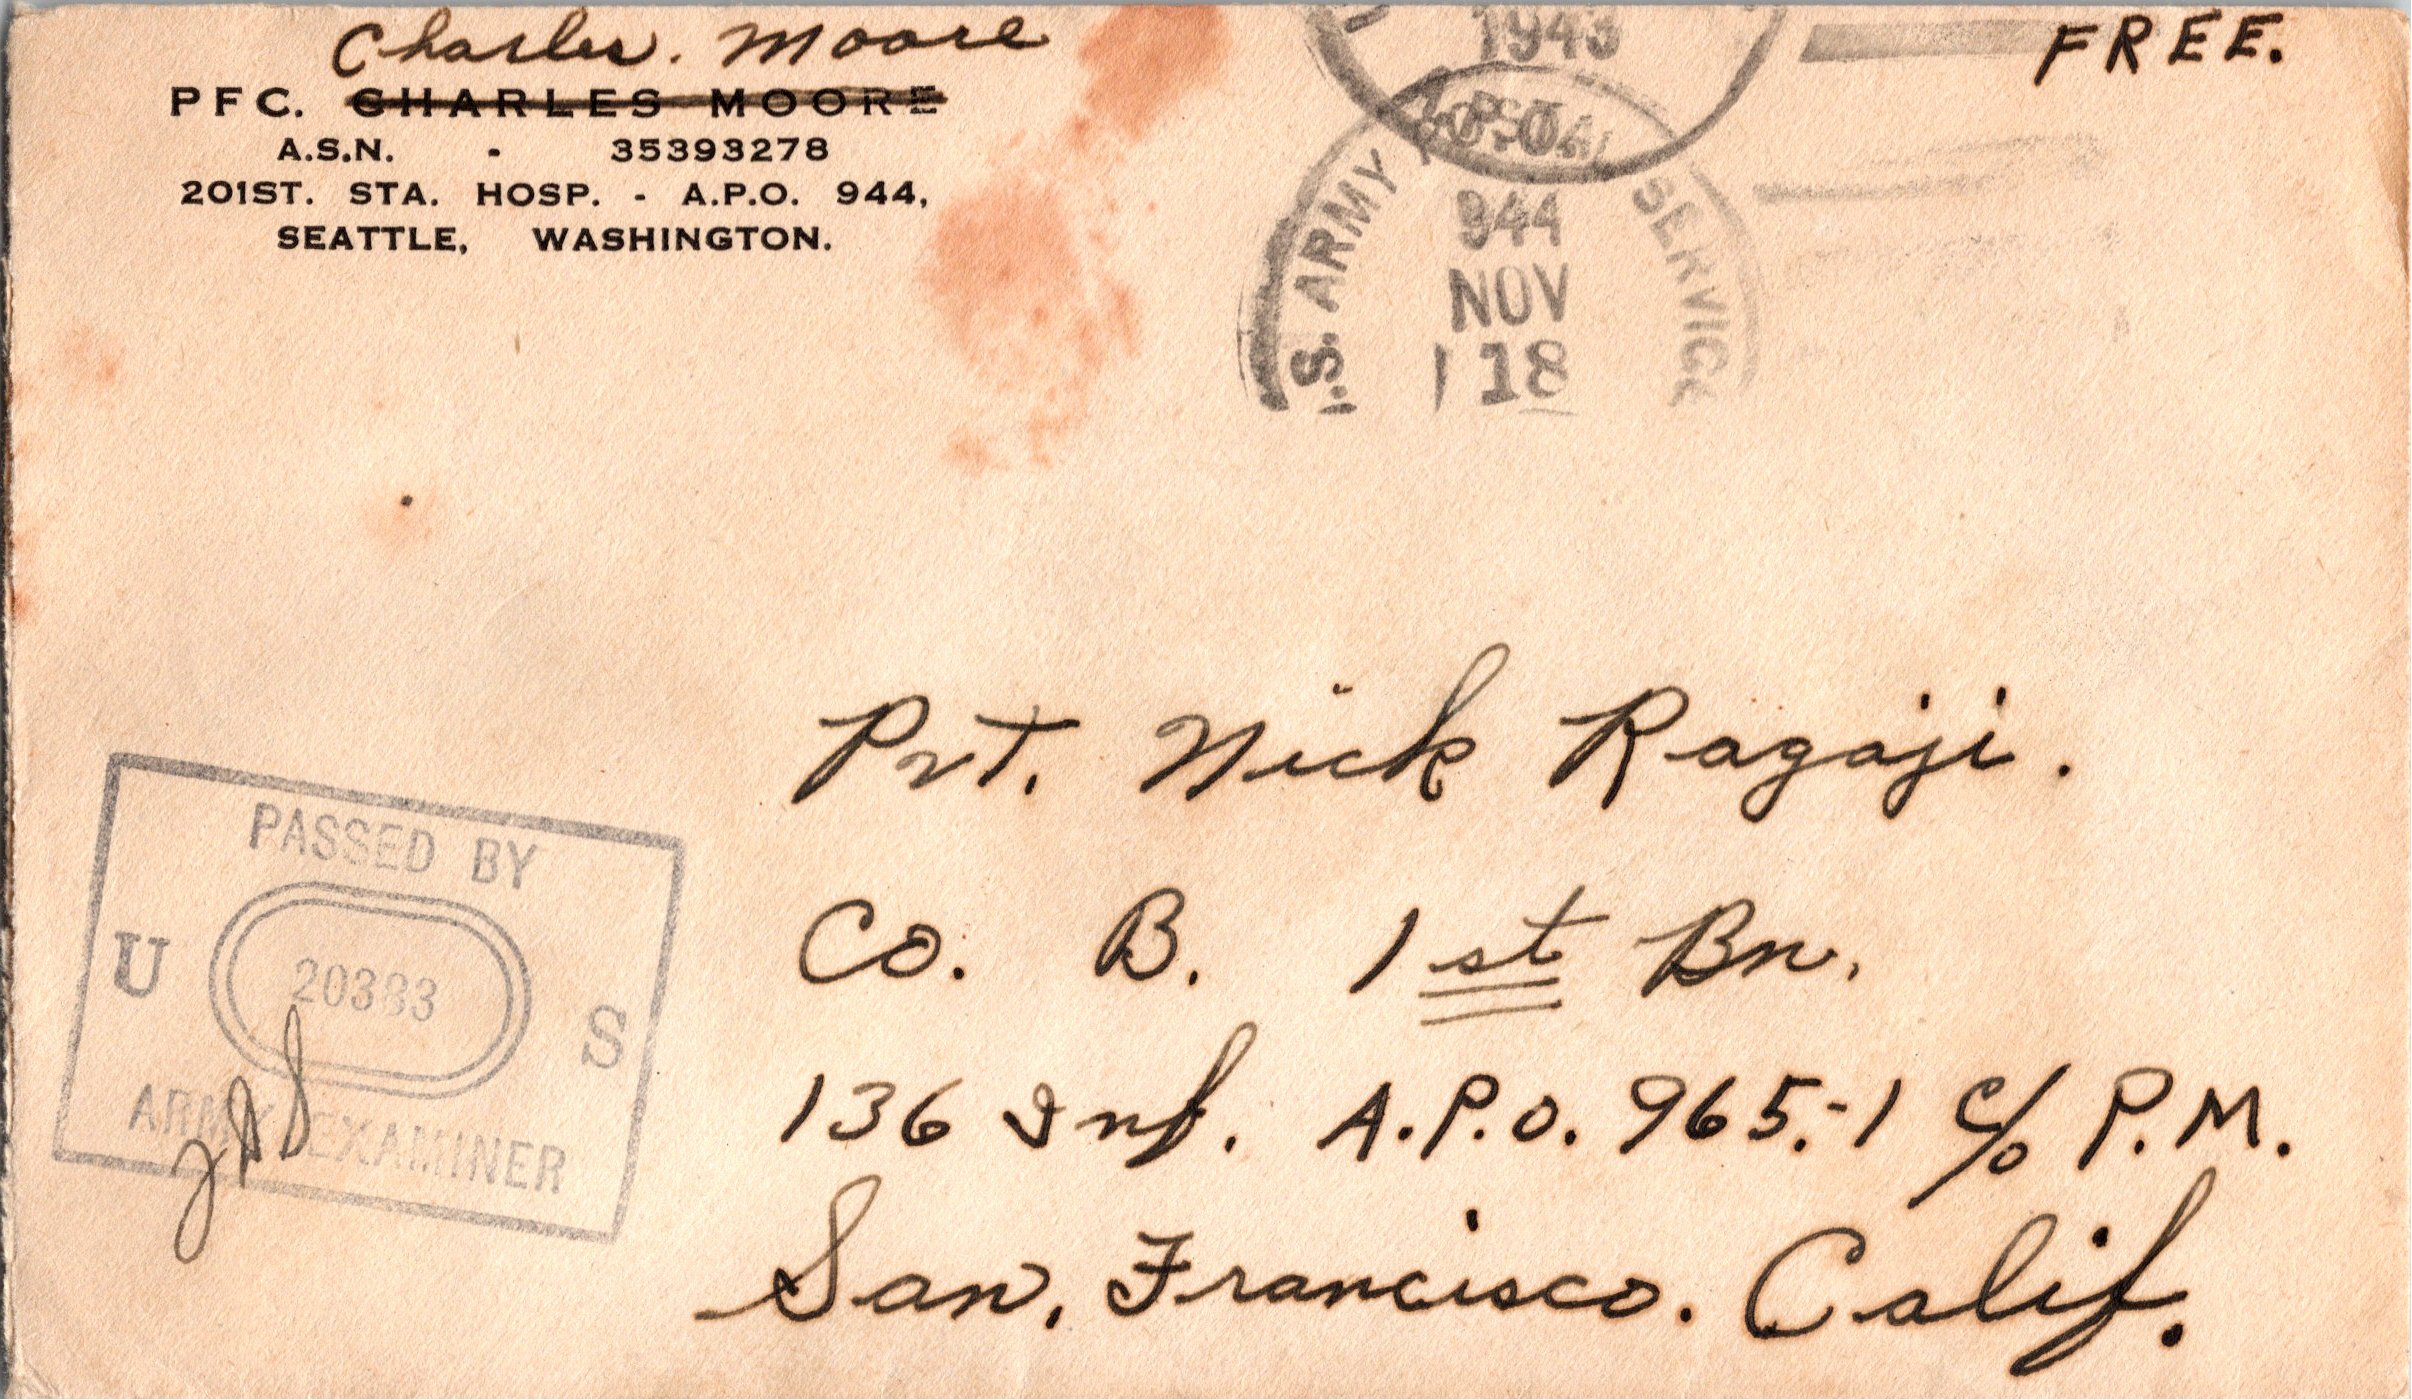 Charles. Moore
PFC. CHARLES MOORE
A.S.N. - 35393278
201ST. STA. HOSP. - A.P.O. 944,
SEATTLE, WASHINGTON.
1943
A.P.O.
.S. ARMY POSTAL SERVICE
944
NOV
18
FREE.
Pvt. Nick Ragaji.
Co. B. 1st Bn.
136 Inf. A.P.O. 965.-1 c/o P.M.
San, Francisco. Calif.
PASSED BY
U 20383 S
ARMY EXAMINER